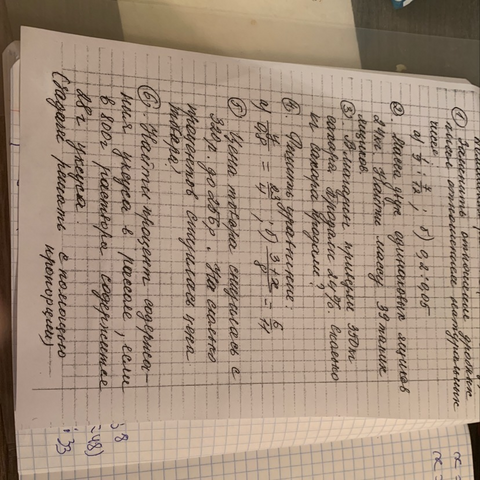 ① Заменить отношение дробных
чисел отношением натуральных
чисел
а) 1/7 : 7/12 ; б) 0,2 : 0,05
② Масса двух одинаковых ящиков
24 кг. Найти массу 39 таких
ящиков.
③ В магазин привезли 350 кг
сахара. Продали 24%. Сколько
кг сахара продали?
④ Решить уравнение:
⑤ Цена товара снизилась с
320р. до 256р. На сколько
процентов снизилась цена
товара?
⑥ Найти процент содержа-
ния уксуса в рассоле, если
в 800г раствора содержится
28г уксуса.
(Задачи решать с помощью
пропорции)